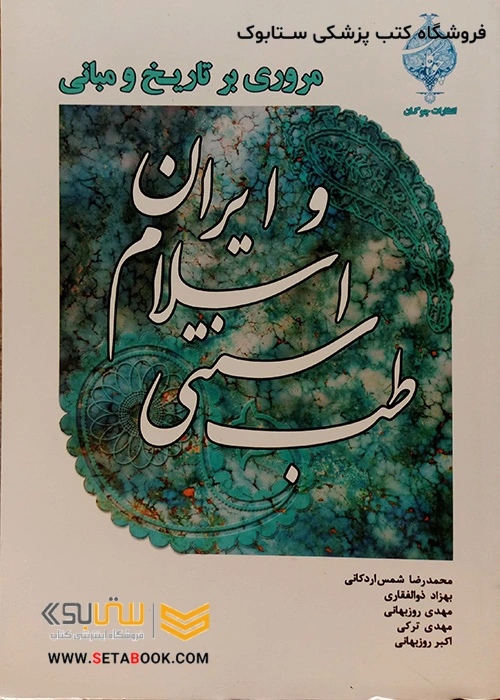 فروشگاه کتب پزشکی ستابوک
انتشارات چوگان
مروری بر تاریخ و مبانی
طب سنتی
اسلام
و ایران
محمدرضا شمس‌اردکانی
بهزاد ذوالفقاری
مهدی روزبهانی
مهدی ترکی
اکبر روزبهانی
ستابوک
فروشگاه اینترنتی کتاب
WWW.SETABOOK.COM